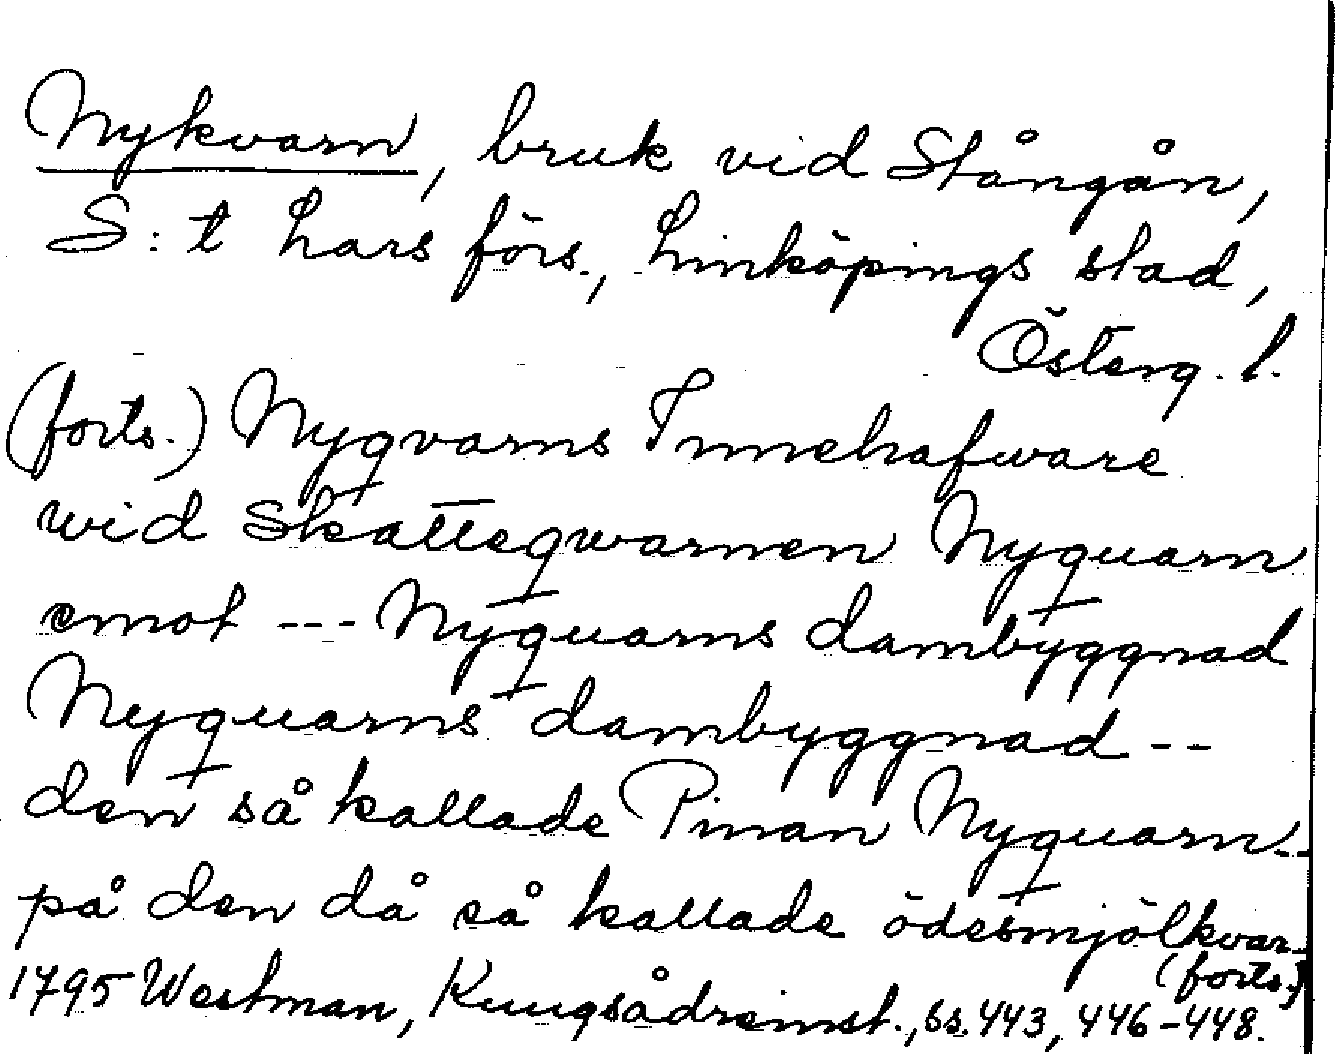 Nykvarn, bruk vid Stångån,
S:t Lars förs., Linköpings stad,
Österg. l.
(forts.) Nyqvarns Innehafware
wid Skatteqwarnen Nyquarn
emot --- Nyquarns dambyggnad
Nyquarns dambyggnad --
den så kallade Pinan Nyquarn--
på den då så kallade ödesmjölkvar-
(forts.)
1795 Westman, Kungsådreinst., ss. 443, 446-448.